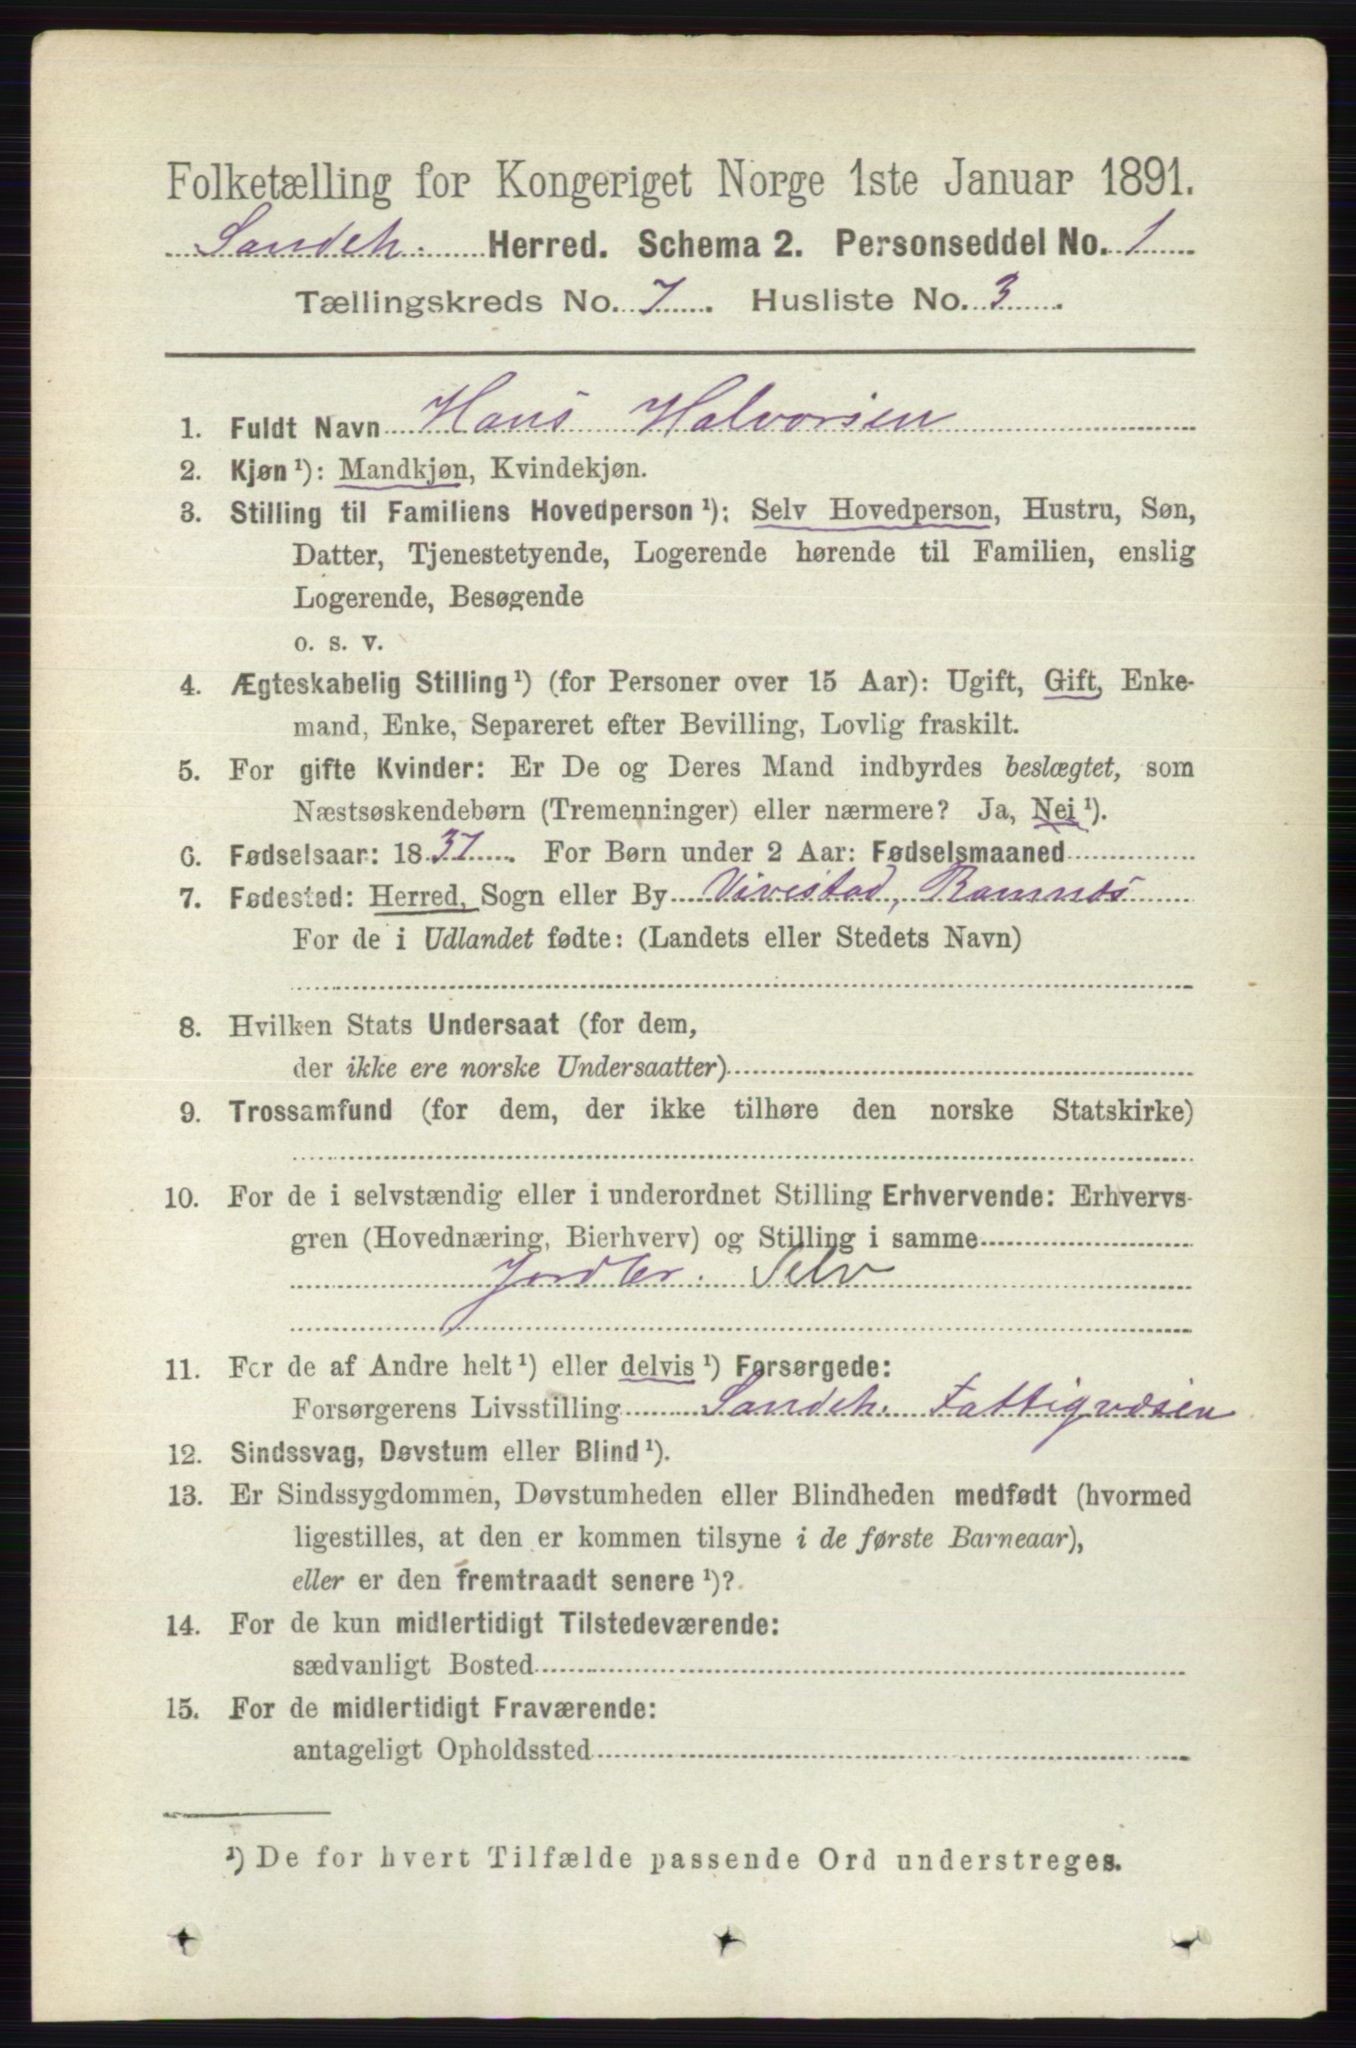 Folketælling for Kongeriget Norge 1ste Januar 1891.
Sandeh. Herred. Schema 2. Personseddel No. 1
Tællingskreds No. 7. Husliste No. 3.
1. Fuldt Navn Hans Halvorsen
2. Kjøn¹): Mandkjøn, Kvindekjøn.
3. Stilling til Familiens Hovedperson¹): Selv Hovedperson, Hustru, Søn,
Datter, Tjenestetyende, Logerende hørende til Familien, enslig
Logerende, Besøgende
o. s. v.
4. Ægteskabelig Stilling¹) (for Personer over 15 Aar): Ugift, Gift, Enke-
mand, Enke, Separeret efter Bevilling, Lovlig fraskilt.
5. For gifte Kvinder: Er De og Deres Mand indbyrdes beslægtet, som
Næstsøskendebørn (Tremenninger) eller nærmere? Ja, Nei¹).
6. Fødselsaar: 1837. For Børn under 2 Aar: Fødselsmaaned
7. Fødested: Herred, Sogn eller By Vivestad, Ramnæs
For de i Udlandet fødte: (Landets eller Stedets Navn)
8. Hvilken Stats Undersaat (for dem,
der ikke ere norske Undersaatter)
9. Trossamfund (for dem, der ikke tilhøre den norske Statskirke)
10. For de i selvstændig eller i underordnet Stilling Erhvervende: Erhvervs-
gren (Hovednæring, Bierhverv) og Stilling i samme
Jordbr. Selv
11. For de af Andre helt¹) eller delvis¹) Forsørgede:
Forsørgerens Livsstilling Sandeh. Fattigvæsen
12. Sindssvag, Døvstum eller Blind¹).
13. Er Sindssygdommen, Døvstumheden eller Blindheden medfødt (hvormed
ligestilles, at den er kommen tilsyne i de første Barneaar),
eller er den fremtraadt senere¹)?
14. For de kun midlertidigt Tilstedeværende:
sædvanligt Bosted
15. For de midlertidigt Fraværende:
antageligt Opholdssted
¹) De for hvert Tilfælde passende Ord understreges.